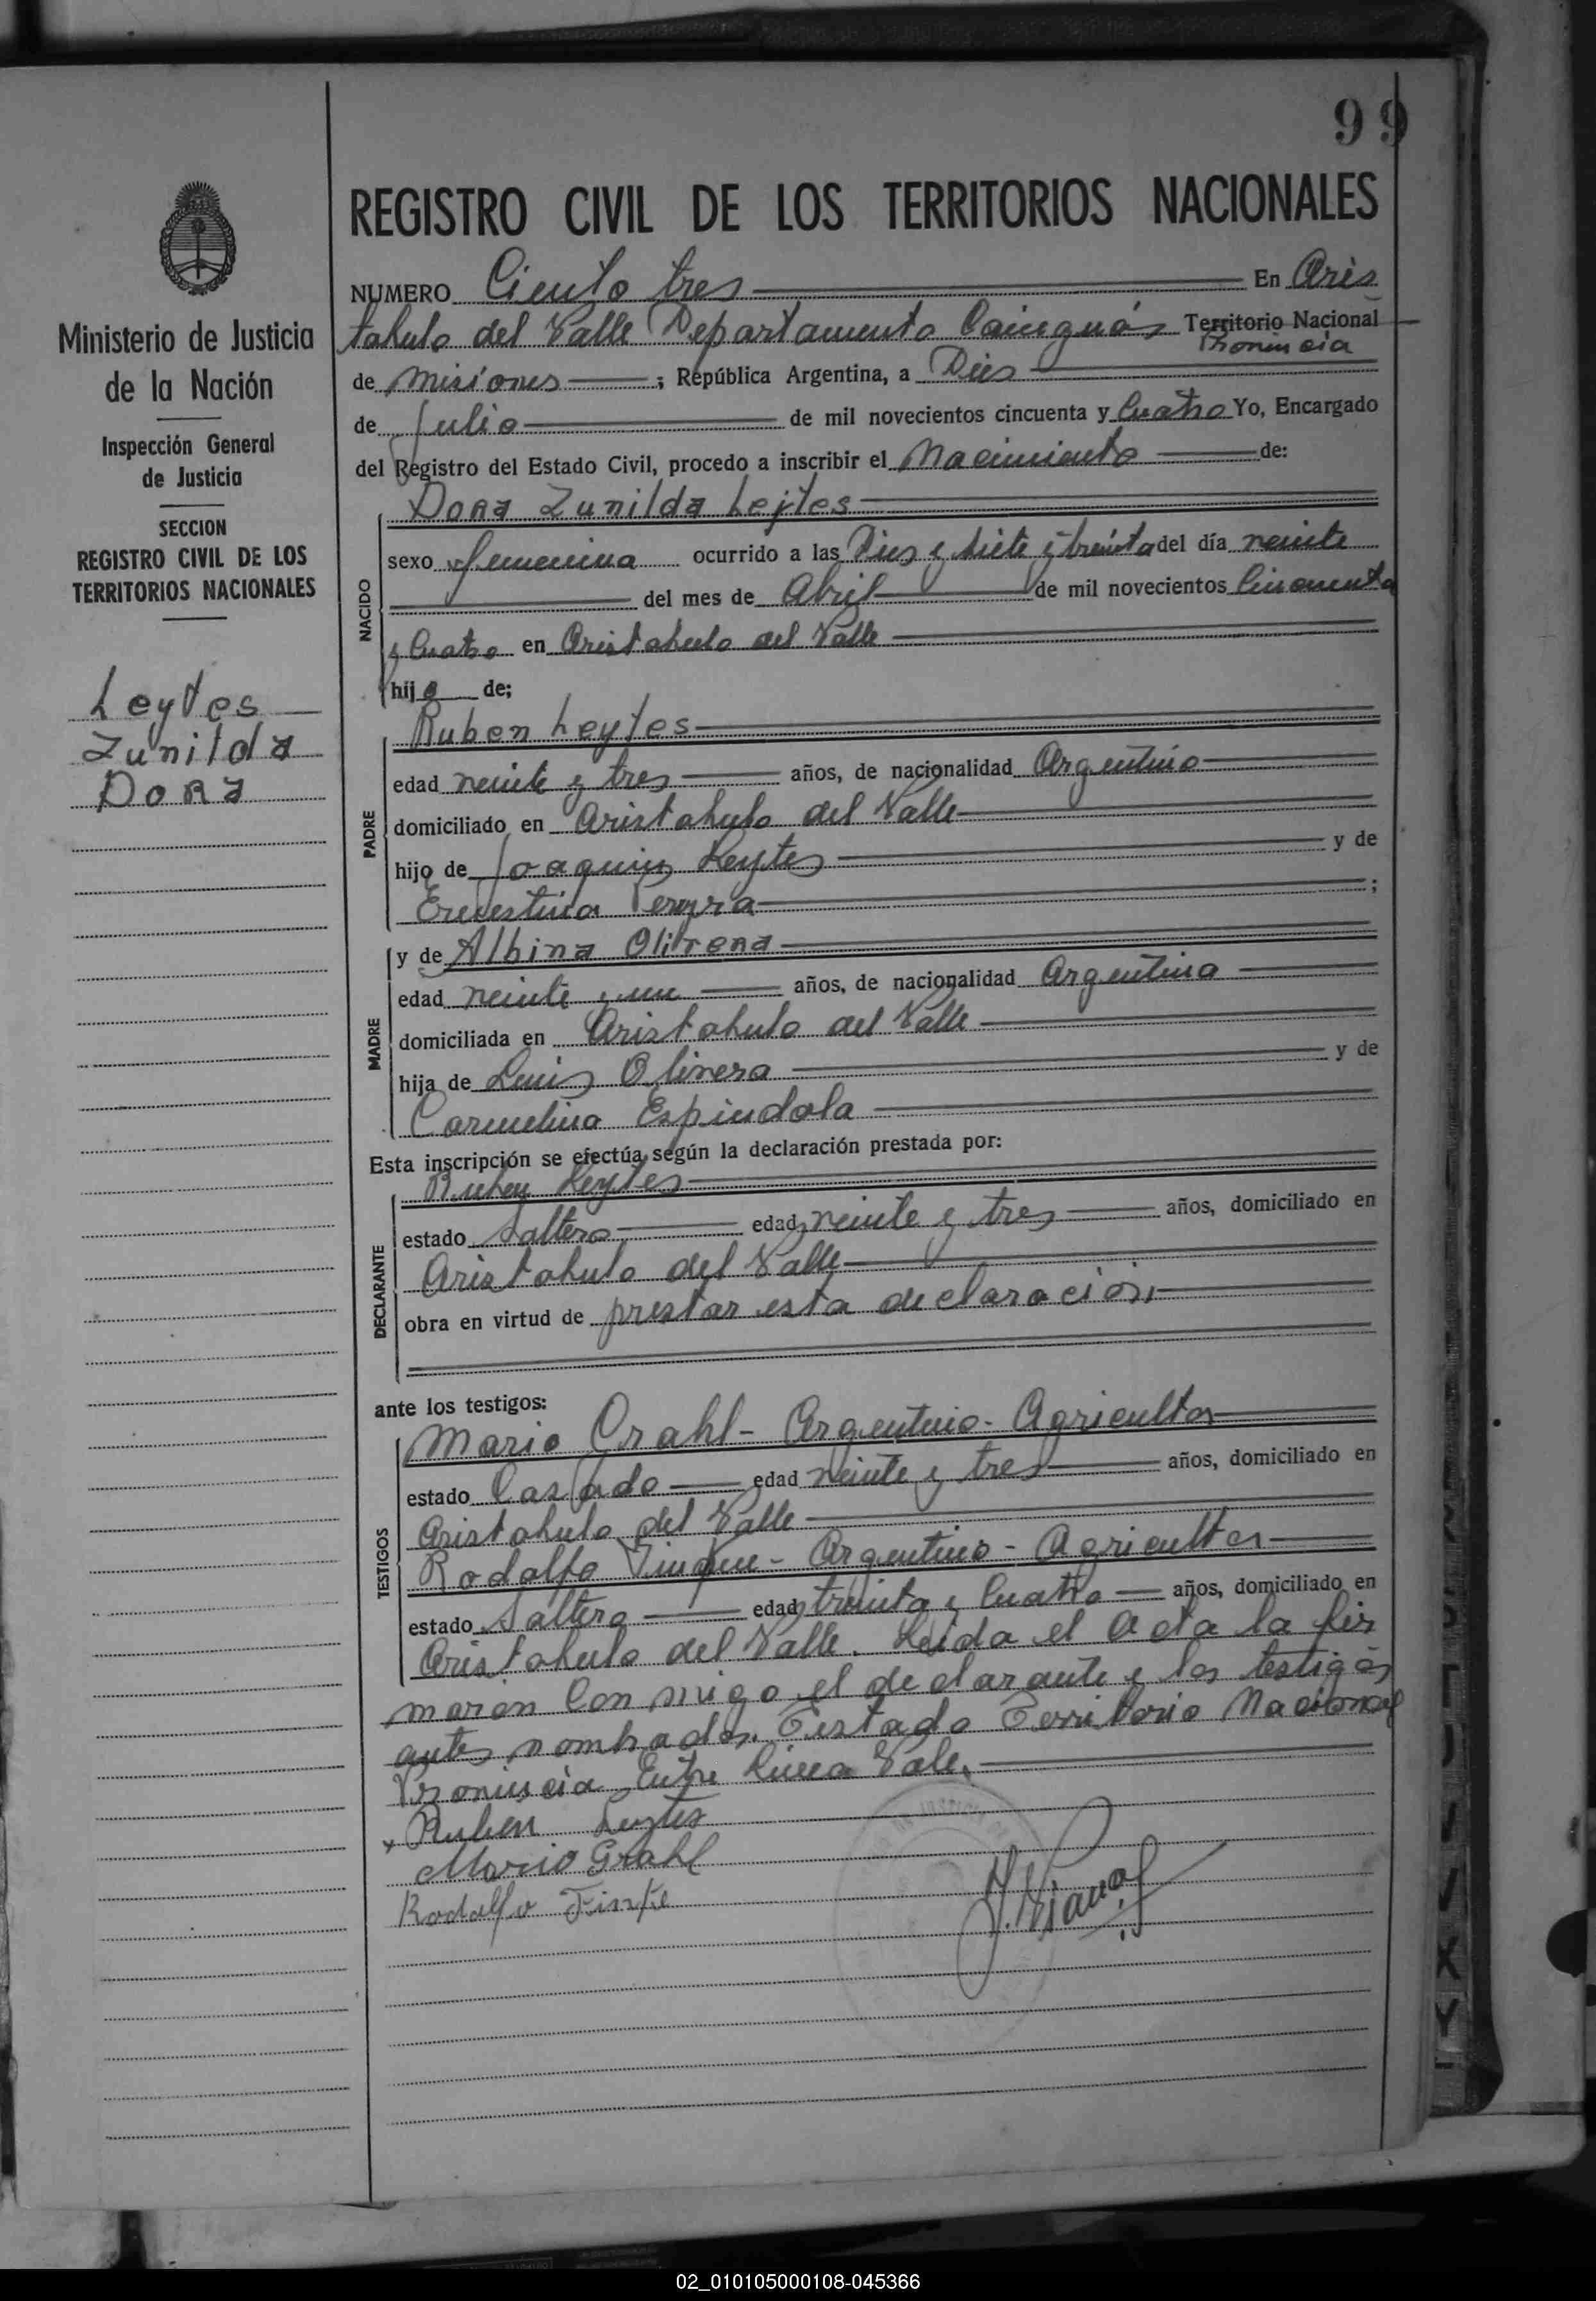 99
REGISTRO CIVIL DE LOS TERRITORIOS NACIONALES
NUMERO Ciento tres En Aris
tobulo del Valle Departamento Cainguás Territorio Nacional
Provincia
de Misiones ; República Argentina, a Dies
de Julio de mil novecientos cincuenta y Cuatro Yo, Encargado
del Registro del Estado Civil, procedo a inscribir el Nacimiento de:
Dora Zunilda Leytes
sexo femenina ocurrido a las Dies y siete y treinta del día veinte
del mes de Abril de mil novecientos Cincuenta
NACIDO
y Cuatro en Aristobulo del Valle
hija de;
Ruben Leytes
edad veinte y tres años, de nacionalidad Argentino
PADRE
domiciliado en Aristobulo del Valle
hijo de Joaquin Leytes y de
Erenestina Pereyra ;
y de Albina Olivera
edad veinte y un años, de nacionalidad Argentina
MADRE
domiciliada en Aristobulo del Valle
hija de Luis Olivera y de
Carmelina Espindola
Esta inscripción se efectúa según la declaración prestada por:
Ruben Leytes
estado Saltero edad veinte y tres años, domiciliado en
DECLARANTE
Aristobulo del Valle
obra en virtud de prestar esta declaracion
ante los testigos:
Mario Grahl - Argentino - Agricultor
estado Casado edad veinte y tres años, domiciliado en
Aristobulo del Valle
TESTIGOS
Rodolfo - Argentino - Agricultor
estado Saltero edad treinta y Cuatro años, domiciliado en
Aristobulo del Valle. Leida el Acta la fir
maron Con migo el declarante y los testigos
antes nombrados. Testado Territorio Nacional
Provinscia Entre linea Vale.
x Ruben Leytes
Mario Grahl
Rodolfo Finke
Ministerio de Justicia
de la Nación
Inspección General
de Justicia
SECCION
REGISTRO CIVIL DE LOS
TERRITORIOS NACIONALES
Leytes
Zunilda
Dora
02_010105000108-045366